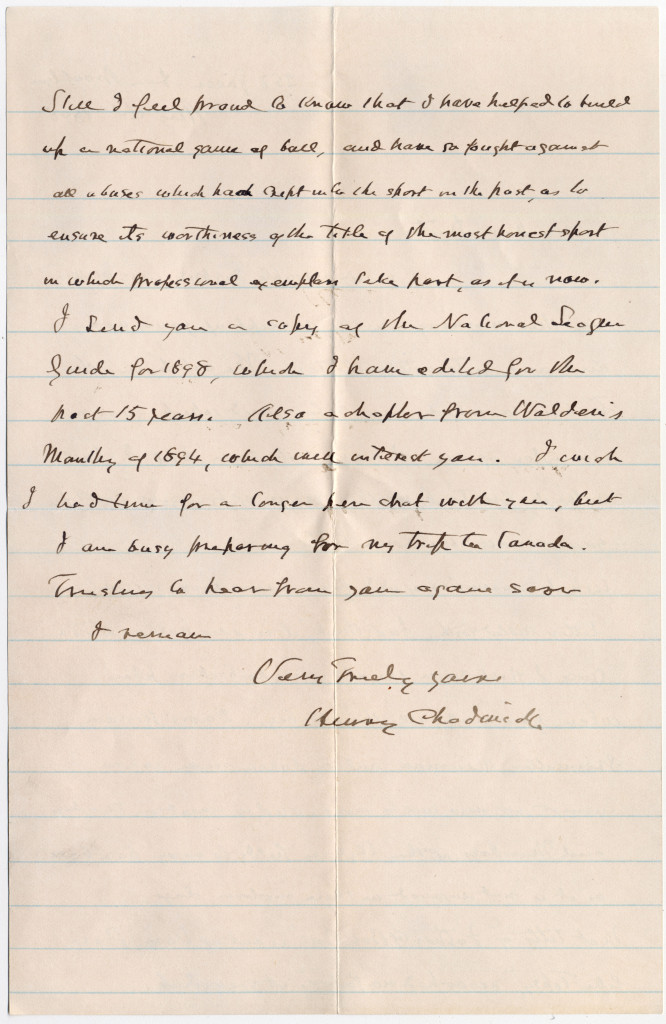 Still I feel proud to know that I have helped to build
up a national game of ball, and have so fought against
all abuses which had crept into the sport in the past, as to
ensure its worthiness of the title of the most honest sport
in which professional exemplars take part, as it is now.
I send you a copy of the National League
Guide for 1898, which I have edited for the
past 15 years. Also a chapter from Walden's
Monthly of 1894, which will interest you. I wish
I had time for a longer pen chat with you, but
I am busy preparing for my trip to Canada.
Trusting to hear from you again soon
I remain
Very Truly yours
Henry Chadwick